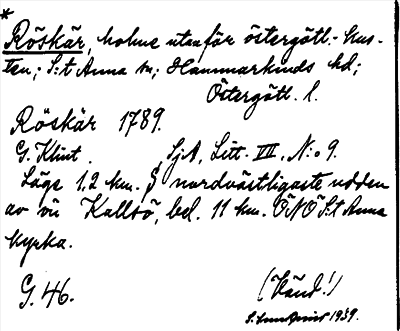 *
Röskär, holme utanför östergötl. kus-
ten; S:t Anna sn; Hammarkinds hd;
Östergötl. l.
Röskär 1789.
G. Klint. SjA, Litt. VII, N:o 9.
Läge 1,2 km. S nordvästligaste udden
av ön Kallsö, bel. 11 km. ÖNÖ S:t Anna
kyrka.
G. 46. (Vänd!)
1939.